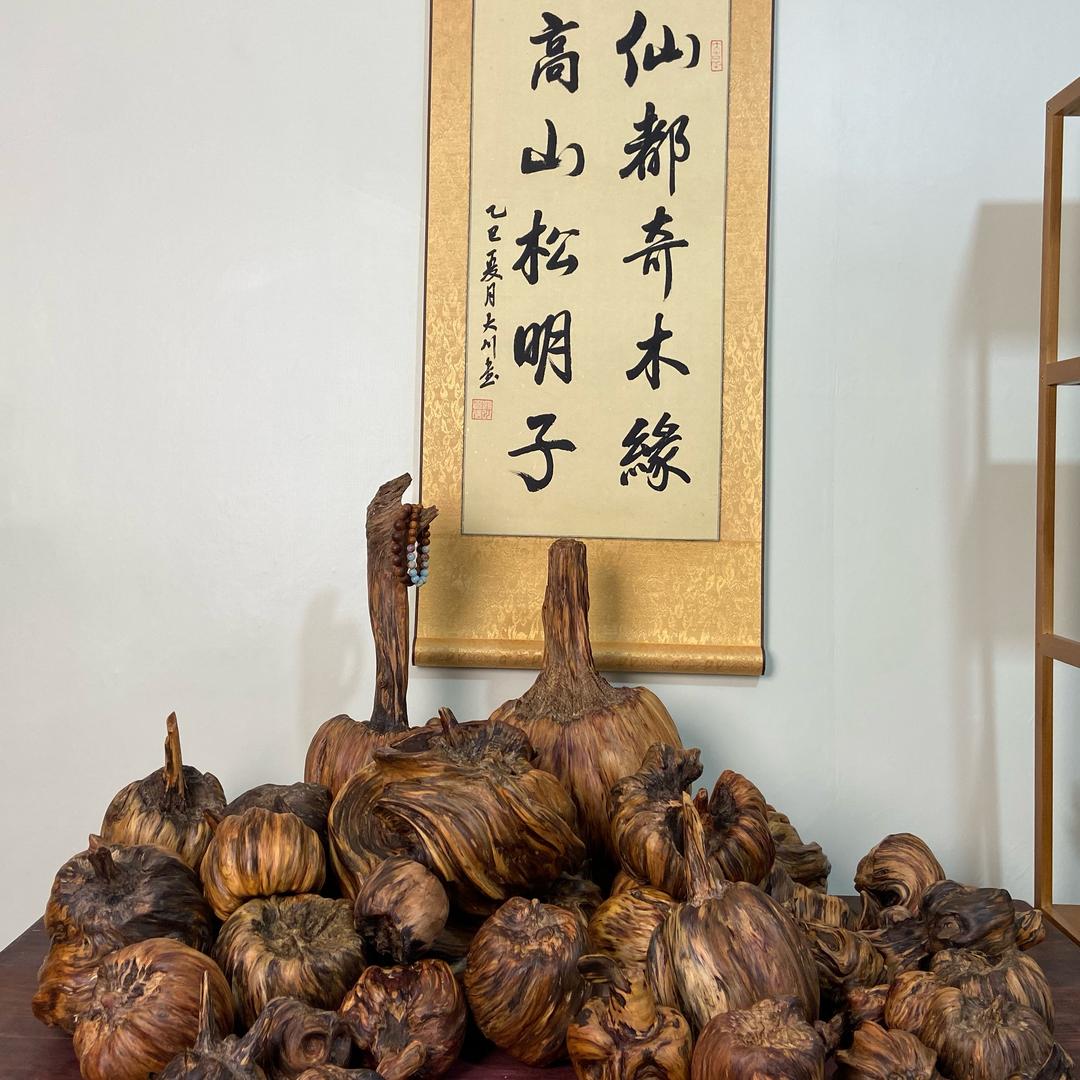 仙都奇木緣
高山松明子
乙巳夏月大川書